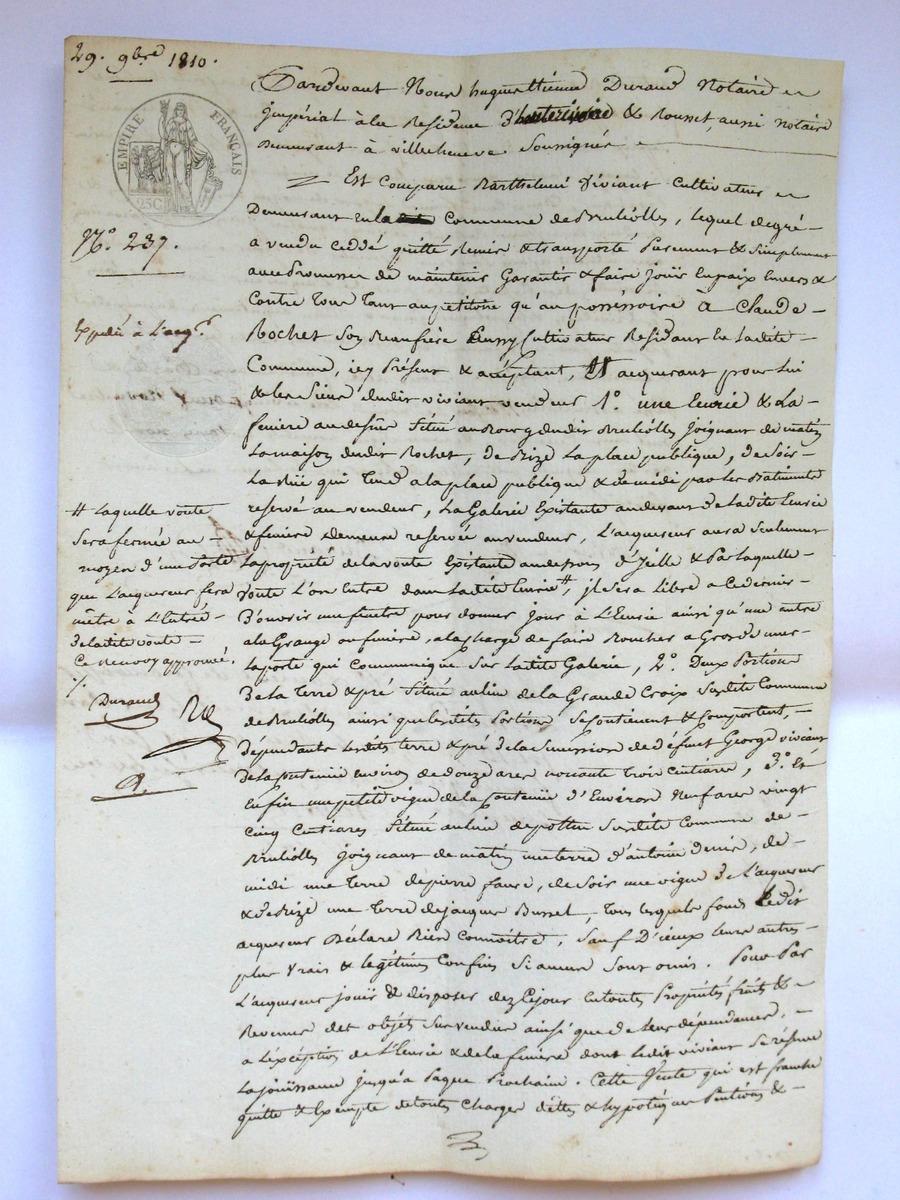 29. 9bre 1810.
EMPIRE FRANÇAIS
25C
N.o 237.
Expédié à L'acq.r
Pardevant Nous hugue Etienne Durand Notaire
Impérial à la Residence & Rousset, aussi notaire
Demeurant à villecheneve Soussignés
Est Comparu Barthelemi Viviant Cultivateur
Demeurant en la Commune de Brulliolles, lequel de gré
a vendu ceddé quitté Remis & transporté Purement & Simplement
avec Promesse de maintenir Garantir & faire Jouir En paix Envers &
Contre Tous Tant au petitoire qu'au possessoire à Claude
Rochet Son Beaufrère aussy Cultivateur Residant en Ladite
Commune, icy Présent & acceptant, acquerant pour Lui
& les Siens dudit viviant vendeur 1.o une Ecurie & La
feniere au dessus Situé au Bourg dudit Brulliolles Joignant de matin
La maison dudit Rochet, de Bize La place publique, de Soir
La Rüe qui Tend a la place publique & de midi par les Batiments
reservé au vendeur, La Galerie Existante au devant de Ladite Ecurie
& feniere demeure reservée au vendeur, L'acquereur aura Seulement
La propriété de la voute Existante au dessous d'Icelle & Par Laquelle
voute L'on Entre dans Ladite Ecurie #, il Sera Libre a Ce dernier
D'ouvrir une fenetre pour donner Jour à L'Ecurie ainsi qu'une autre
a la Grange ou feniere, a la charge de faire Boucher a Gros de mur
La porte qui Communique Sur Ladite Galerie, 2.o Deux Portions
De la Terre & pré Situé au Lieu de la Grande Croix Susdite Commune
de Brulliolles ainsi que lesdites Portions Se Contiennent & Comportent,
Dépendante desdits terre & pré de la Succession de défunt George viviant
de la Contenüe Environ de douze ares nonante Trois Centiares, 3.o Et
Enfin une petite vigne de la Contenüe d'Environ Neuf ares vingt
Cinq Centiares Située au Lieu de Susdite Commune de
Brulliolles Joignant de matin une terre d'antoine Denis, de
midi une Terre de pierre faure, de Soir une vigne de L'acquereur
& de Bize une Terre de Jacques Bussel, Tous lesquels fonds Ledit
acquereur Déclare Bien Connoitre, Sauf D'iceux leurs autres
plus Vrais & legitimes Confins Si aucun Sont omis. Pour Par
L'acquereur Jouir & disposer dez Ce jour En toute Propriété fruits &
Revenus des objets Sus vendus ainsi que de leurs dépendances,
a L'exception de L'Ecurie & de la feniere dont Ledit viviant Se réserve
La Jouissance Jusqu'à Paque Prochain. Cette Vente qui est franche
quitte & Exempte de toutes Charges dettes & hypotèques Pensions &
# Laquelle voute
Sera fermée au
moyen d'une Porte
que L'acquereur fera
mètre à L'Entrée
de ladite voute
Ce Renvoy approuvé.
Durand